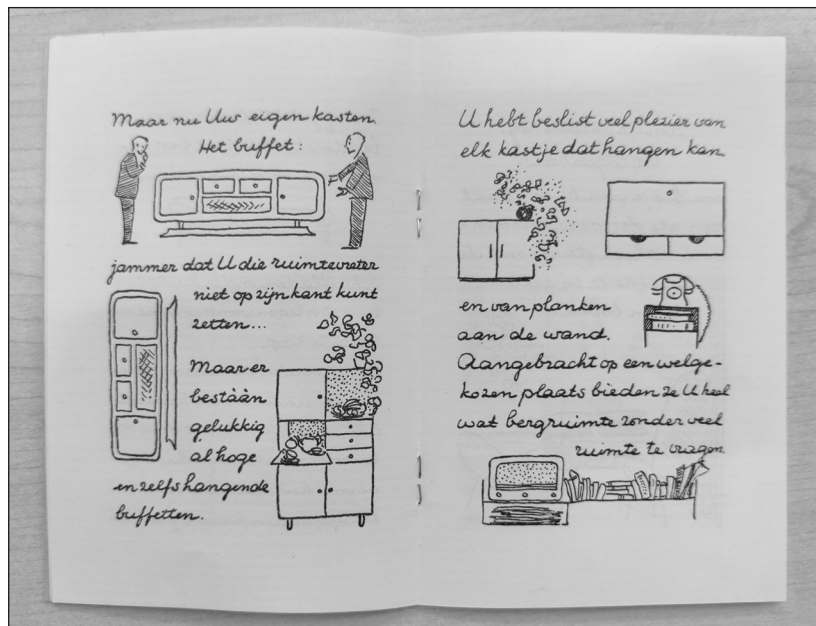 Maar nu Uw eigen kasten.
Het buffet:
jammer dat U die ruimtevreter
niet op zijn kant kunt
zetten...
Maar er
bestáán
gelukkig
al hoge
en zelfs hangende
buffetten.
U hebt beslist veel plezier van
elk kastje dat hangen kan
en van planken
aan de wand.
Aangebracht op een welge-
kozen plaats bieden ze U heel
wat bergruimte zonder veel
ruimte te vragen.